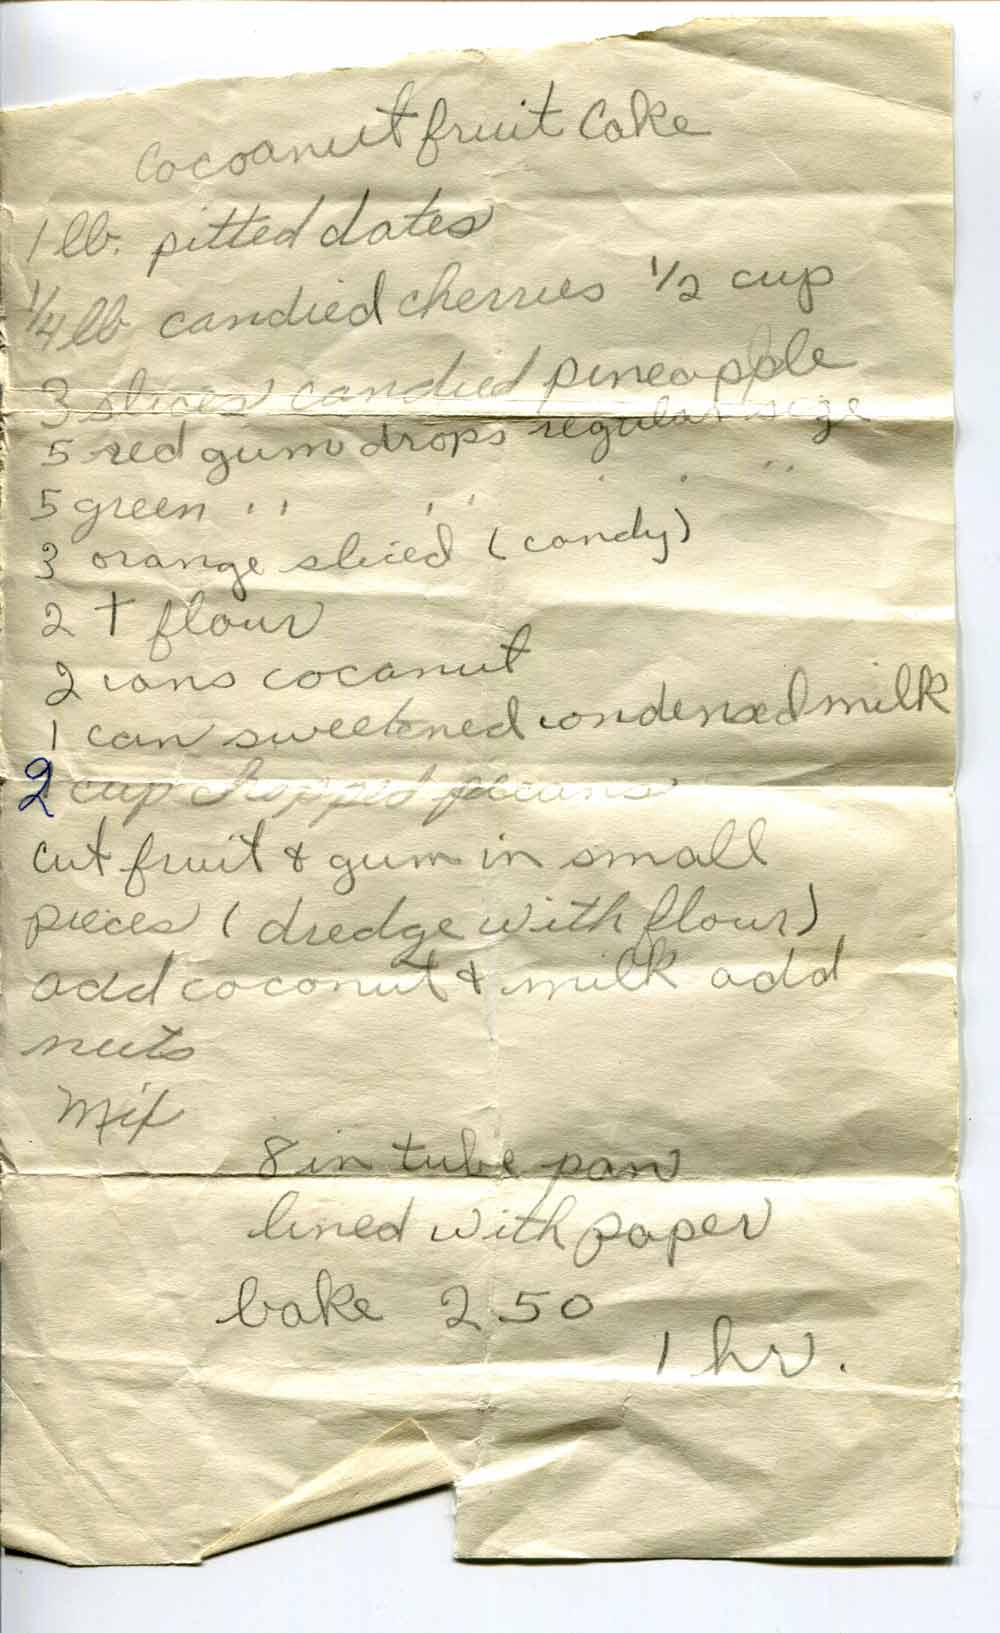 Cocoanut fruit Cake
1 lb. pitted dates
1/4 lb candied cherries 1/2 cup
3 slices candied pineapple
5 red gum drops regular size
5 green " " " "
3 orange sliced (candy)
2 T flour
2 cans coconut
1 can sweetened condensed milk
2 cup chopped pecans
cut fruit & gum in small
pieces (dredge with flour)
add coconut & milk add
nuts
Mix
8 in tube pan
lined with paper
bake 250
1 hr.